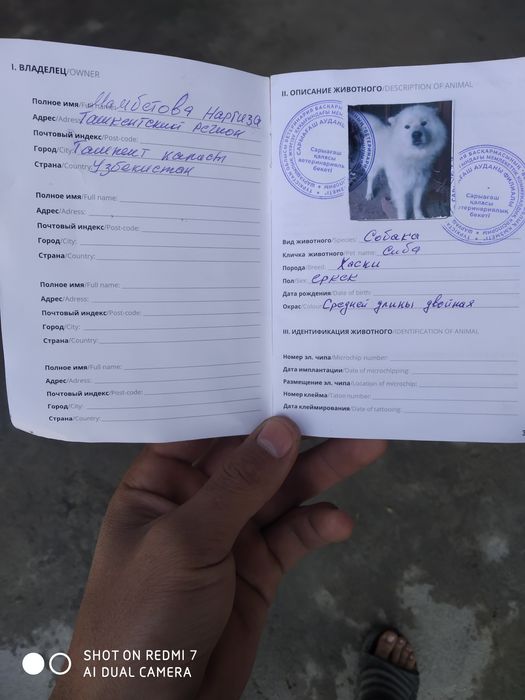 I. ВЛАДЕЛЕЦ/OWNER
Полное имя/Full name: Мамбетова Наргиза
Адрес/Adress: Ташкентский регион
Почтовый индекс/Post-code:
Город/City: Ташкент каласы
Страна/Country: Узбекистан
Полное имя/Full name:
Адрес/Adress:
Почтовый индекс/Post-code:
Город/City:
Страна/Country:
Полное имя/Full name:
Адрес/Adress:
Почтовый индекс/Post-code:
Город/City:
Страна/Country:
Полное имя/Full name:
Адрес/Adress:
Почтовый индекс/Post-code:
Город/City:
Страна/Country:
II. ОПИСАНИЕ ЖИВОТНОГО/DESCRIPTION OF ANIMAL
Сарыағаш
қаласы
ветеринариялық
бекеті
Сарыағаш
қаласы
ветеринариялық
бекеті
Вид животного/Species: Собака
Кличка животного/Pet name: Сиба
Порода/Breed: Хаски
Пол/Sex: еркек
Дата рождения/Date of birth:
Окрас/Colour: Средней длины двойная
III. ИДЕНТИФИКАЦИЯ ЖИВОТНОГО/IDENTIFICATION OF ANIMAL
Номер эл. чипа/Microchip number:
Дата имплантации/Date of microchipping:
Размещение эл. чипа/Location of microchip:
Номер клейма/Tatoo number:
Дата клеймирования/Date of tattooing:
SHOT ON REDMI 7
AI DUAL CAMERA